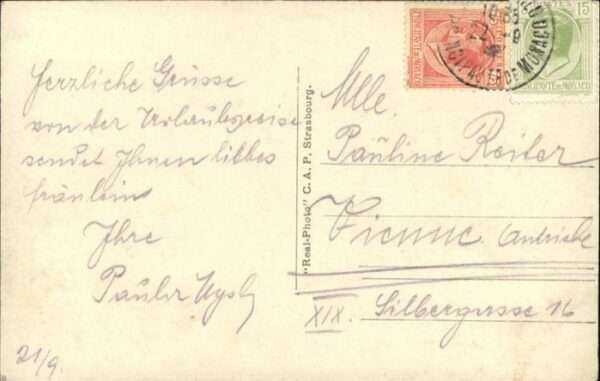 Herzliche Grüsse
von der Urlaubsreise
sendet Ihnen liebes
fräulein
Ihre
Paula
21/9.
"Real-Photo" C. A. P. Strasbourg.
Mlle.
Pauline Reiter
Vienne. Autriche
XIX. Silbergasse 16
15